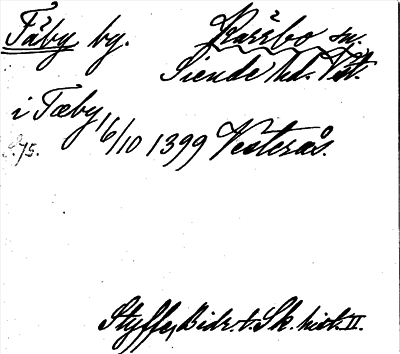 Täby by. Karrbo sn.
Siende hd. Vst.
i Tæby 16/10 1399 Vesterås.
S. 75.
Styffe, Bidr. t. Sk. hist. II.